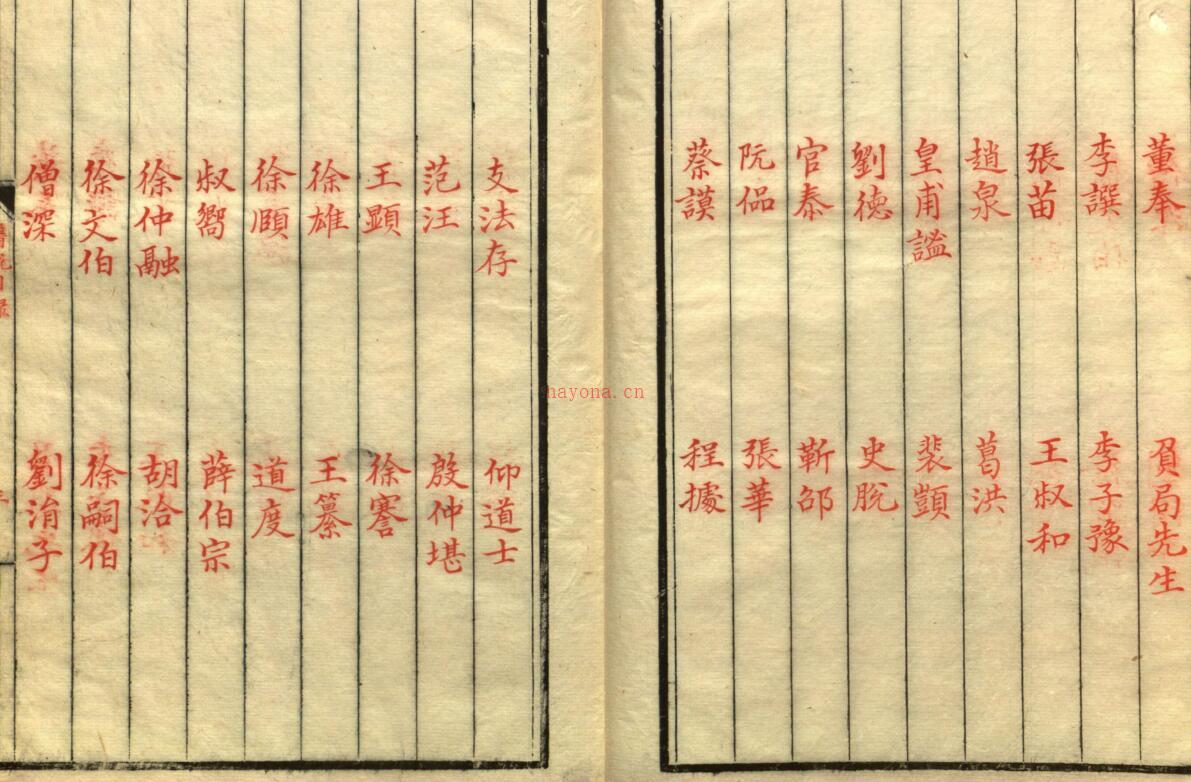 董奉 負局先生
李譔 李子豫
張苗 王叔和
趙泉 葛洪
皇甫謐 裴顗
劉德 史脫
官泰 靳邵
阮偘 張華
蔡謨 程據
支法存 仰道士
范汪 殷仲堪
王顯 徐謇
徐雄 王纂
徐頤 道度
叔嚮 薛伯宗
徐仲融 胡洽
徐文伯 徐嗣伯
僧深 劉涓子
hayona.cn